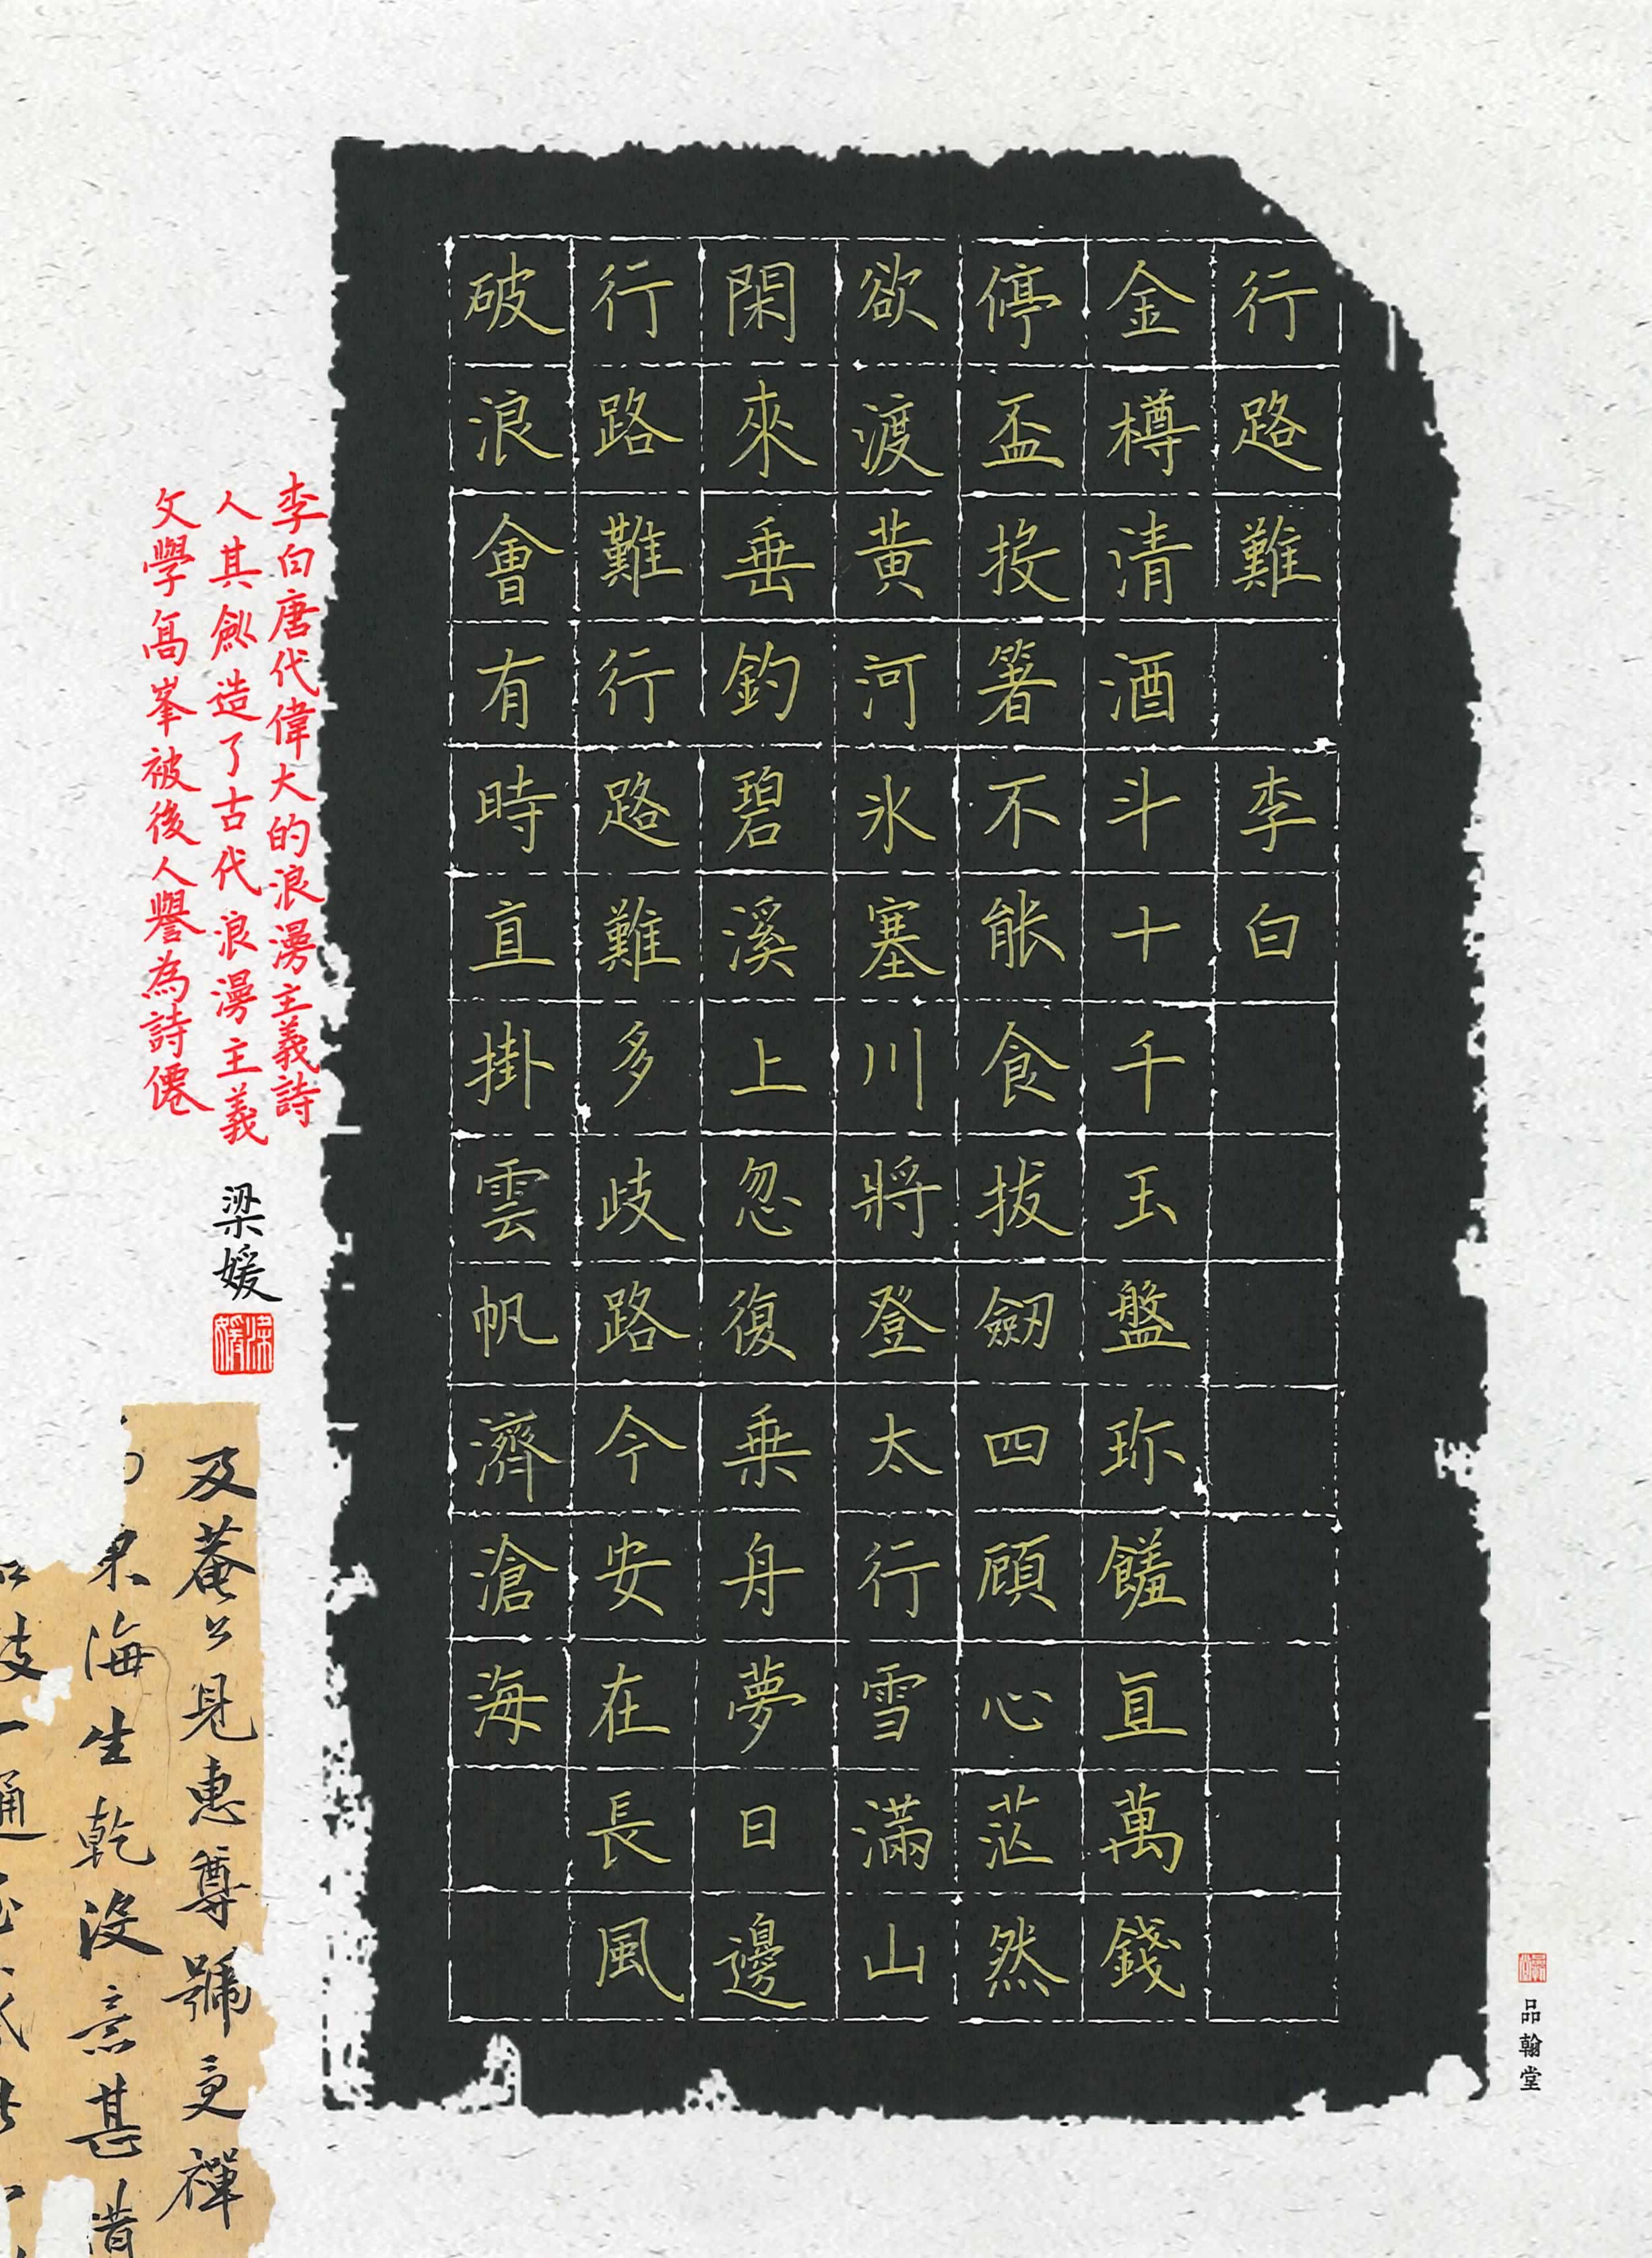 行路難 李白
金樽清酒斗十千玉盤珎饈直萬錢
停盃投箸不能食拔劒四顧心茫然
欲渡黃河氷塞川將登太行雪滿山
閑來垂釣碧溪上忽復乗舟夢日邊
行路難行路難多歧路今安在長風
破浪會有時直掛雲帆濟滄海
李白唐代偉大的浪漫主義詩
人其創造了古代浪漫主義
文學高峯被後人譽為詩僊
梁媛
梁媛
及菴公見惠尊號更禪
海生乾沒意甚
通
品翰堂